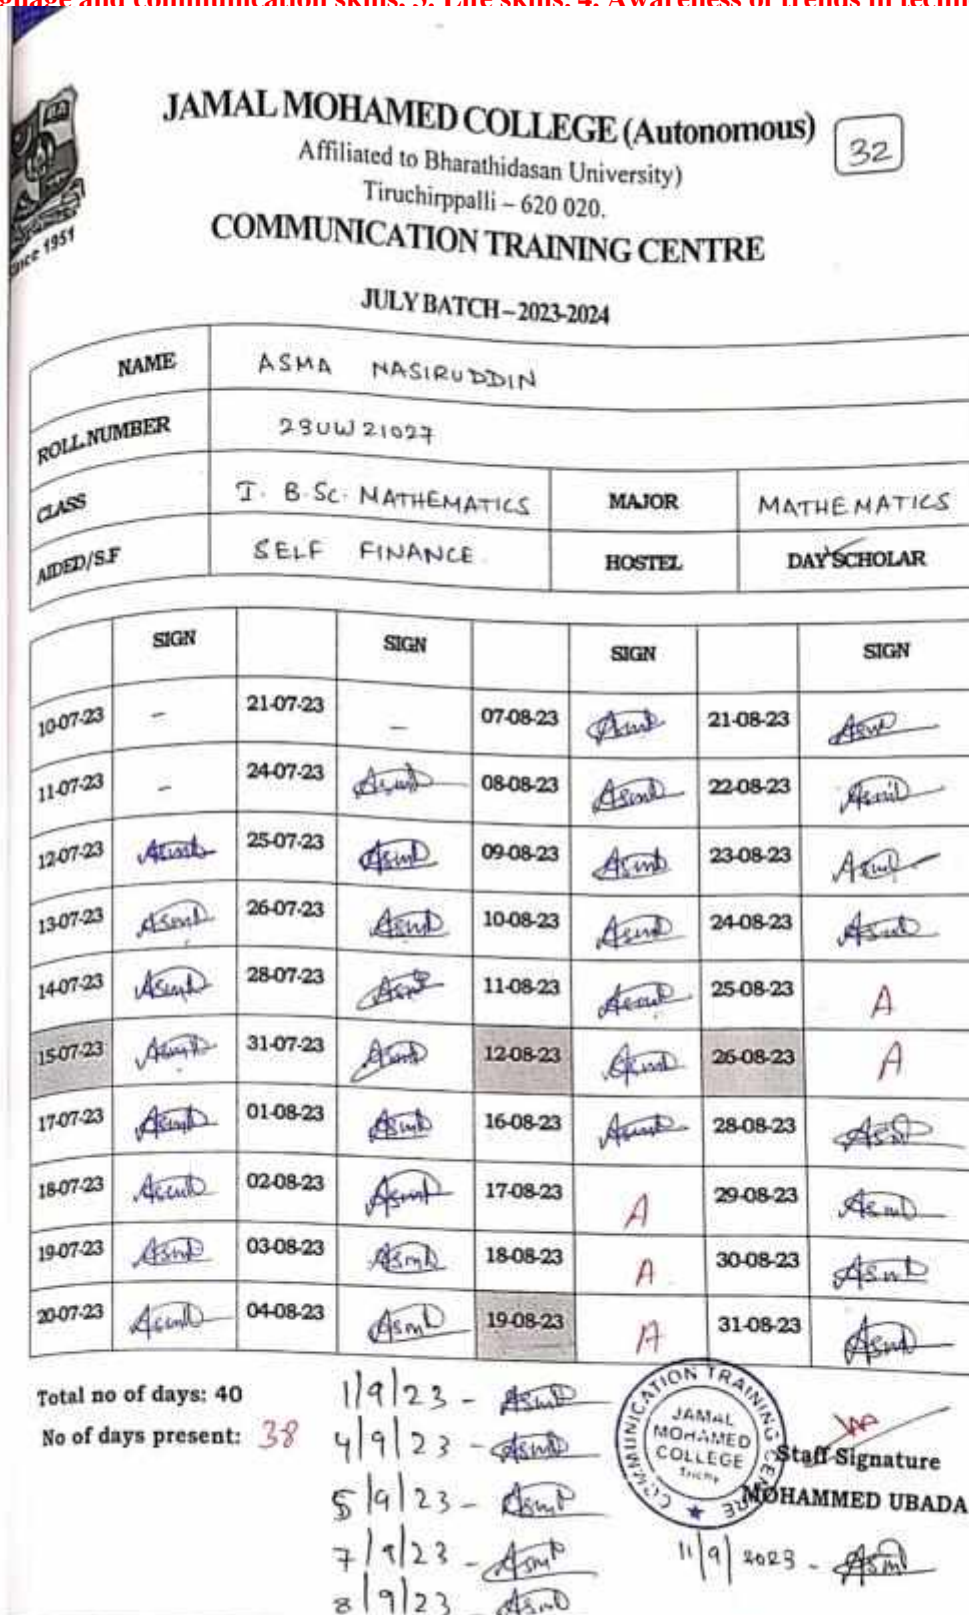 guage and communication skills. 3. Life skills. 4. Awareness of trends in techn
JAMAL MOHAMED COLLEGE (Autonomous)
32
Affiliated to Bharathidasan University)
Tiruchirppalli – 620 020.
Since 1951
COMMUNICATION TRAINING CENTRE
JULY BATCH – 2023-2024
NAME ASMA NASIRUDDIN
ROLL.NUMBER 23UW21027
CLASS I. B.Sc. MATHEMATICS MAJOR MATHEMATICS
AIDED/S.F SELF FINANCE. HOSTEL DAY SCHOLAR
SIGN SIGN SIGN SIGN
10-07-23 – 21-07-23 – 07-08-23 Asma 21-08-23 Asma
11-07-23 – 24-07-23 Asma 08-08-23 Asma 22-08-23 Asma
12-07-23 Asma 25-07-23 Asma 09-08-23 Asma 23-08-23 Asma
13-07-23 Asma 26-07-23 Asma 10-08-23 Asma 24-08-23 Asma
14-07-23 Asma 28-07-23 Asma 11-08-23 Asma 25-08-23 A
15-07-23 Asma 31-07-23 Asma 12-08-23 Asma 26-08-23 A
17-07-23 Asma 01-08-23 Asma 16-08-23 Asma 28-08-23 Asma
18-07-23 Asma 02-08-23 Asma 17-08-23 A 29-08-23 Asma
19-07-23 Asma 03-08-23 Asma 18-08-23 A 30-08-23 Asma
20-07-23 Asma 04-08-23 Asma 19-08-23 A 31-08-23 Asma
Total no of days: 40
No of days present: 38
1/9/23 - Asma
4/9/23 - Asma
5/9/23 - Asma
7/9/23 - Asma
8/9/23 Asma
COMMUNICATION TRAINING CENTRE
JAMAL
MOHAMED
COLLEGE
Trichy
Staff Signature
MOHAMMED UBADA
11/9/2023 - Asma